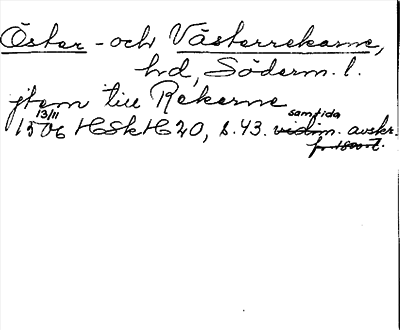 Öster - och Västerrekarne,
hd, Söderm. l.
jtem till Rekarne
1506 13/11 HSkH 20, s. 43. samtida vidim. avskr.
fr. 1800-t.